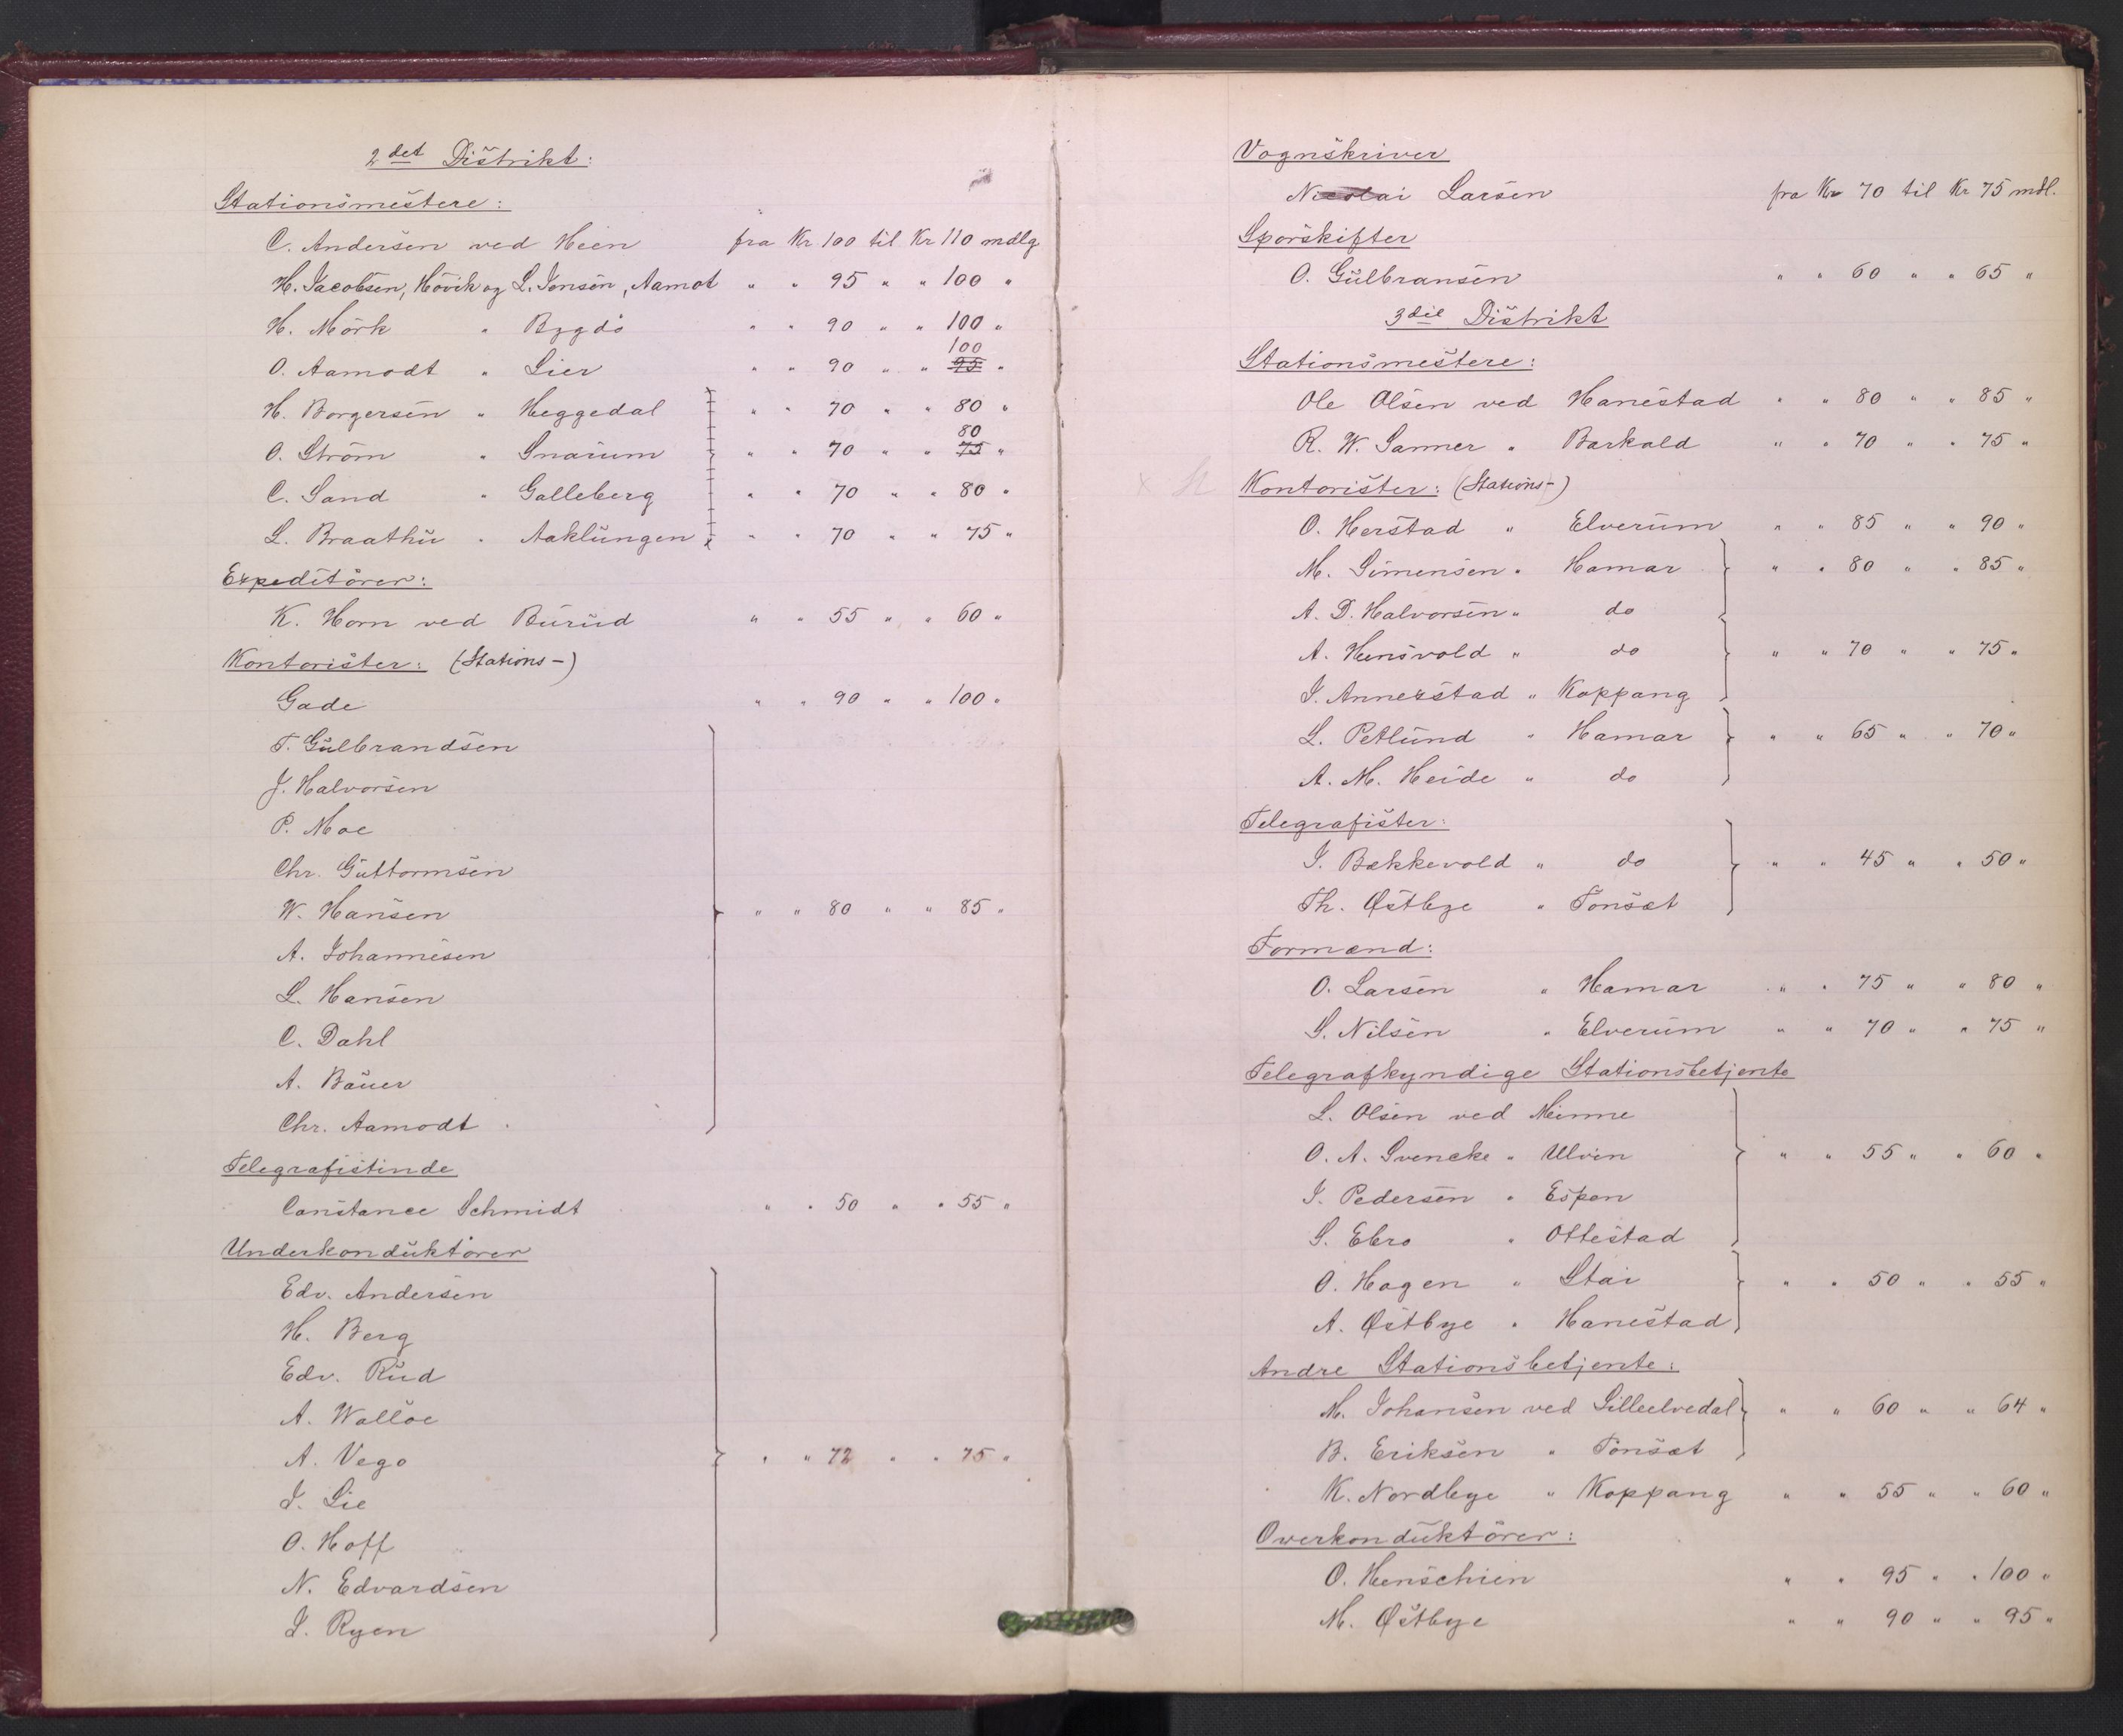 2det Distrikt:
Stationsmestere:
C. Andersen ved Heen fra Kr. 100 til Kr 110 mdlg
H. Jacobsen, Hövik og L. Jensen, Aamot " " 95 " " 100 "
H. Mörk " Bygdö " " 90 " " 100 "
O. Aamodt " Lier " " 90 " " 95 100 "
H. Borgersen " Heggedal " " 70 " " 80 "
O. Ström " Snarum " " 70 " " 75 80 "
C. Sand " Galleberg " " 70 " " 80 "
L. Braathu " Aaklungen " " 70 " " 75 "
Expeditörer:
K. Horn ved Burud " " 55 " " 60 "
Kontorister: (Stations-)
Gade " " 90 " " 100 "
T. Gulbrandsen
J. Halvorsen
P. Moe
Chr. Guttormsen
W. Hansen " " 80 " " 85 "
A. Johannesen
L. Hansen
C. Dahl
A. Bauer
Chr. Aamodt
Telegrafistinde
Constance Schmidt " " 50 " " 55 "
Underkonduktörer
Edv. Andersen
H. Berg
Edv. Rud
A. Wallöe
A. Vego " " 72 " " 75 "
J. Lie
O. Hoff
N. Edvardsen
J. Ryen
Vognskriver
Nicolai Larsen fra Kr 70 til Kr 75 mdl.
Sporskifter
O. Gulbransen " " 60 " " 65 "
3die Distrikt
Stationsmestere:
Ole Olsen ved Hanestad " " 80 " " 85 "
R. W. Sanner " Barkald " " 70 " " 75 "
Kontorister: (Stations-)
O. Herstad " Elverum " " 85 " " 90 "
M. Simensen " Hamar " " 80 " " 85 "
A. D. Halvorsen " do
A. Hunsvold " do " " 70 " " 75 "
J. Annerstad " Koppang
L. Petlund " Hamar " " 65 " " 70 "
A. M. Heide " do
Telegrafister:
J. Bækkevold " do " " 45 " " 50 "
Th. Østbye " Tönsæt
Formænd:
O. Larsen " Hamar " " 75 " " 80 "
S. Nilsen " Elverum " " 70 " " 75 "
Telegrafkyndige Stationsbetjente
L. Olsen ved Minne
O. A. Svencke " Ulvin " " 55 " " 60 "
J. Pedersen " Espen
S. Ebro " Ottestad
O. Hagen " Stai " " 50 " " 55 "
A. Østbye " Hanestad
Andre Stationsbetjente:
M. Johansen ved Lilleelvedal " " 60 " " 64 "
B. Eriksen " Tönsæt
K. Nordbye " Koppang " " 55 " " 60 "
Overkonduktörer:
O. Henschien " " 95 " " 100 "
M. Østbye " " 90 " " 95 "